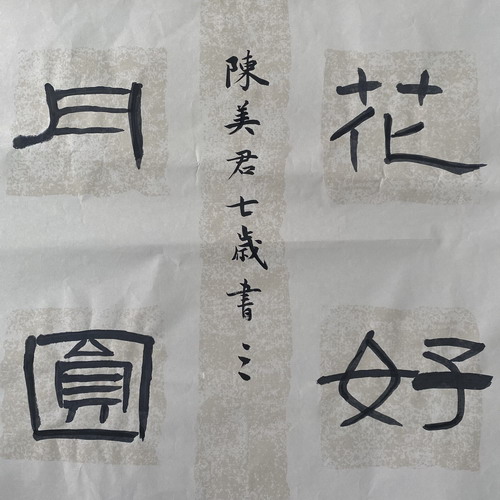 花好
陳美君七歲書
月圓